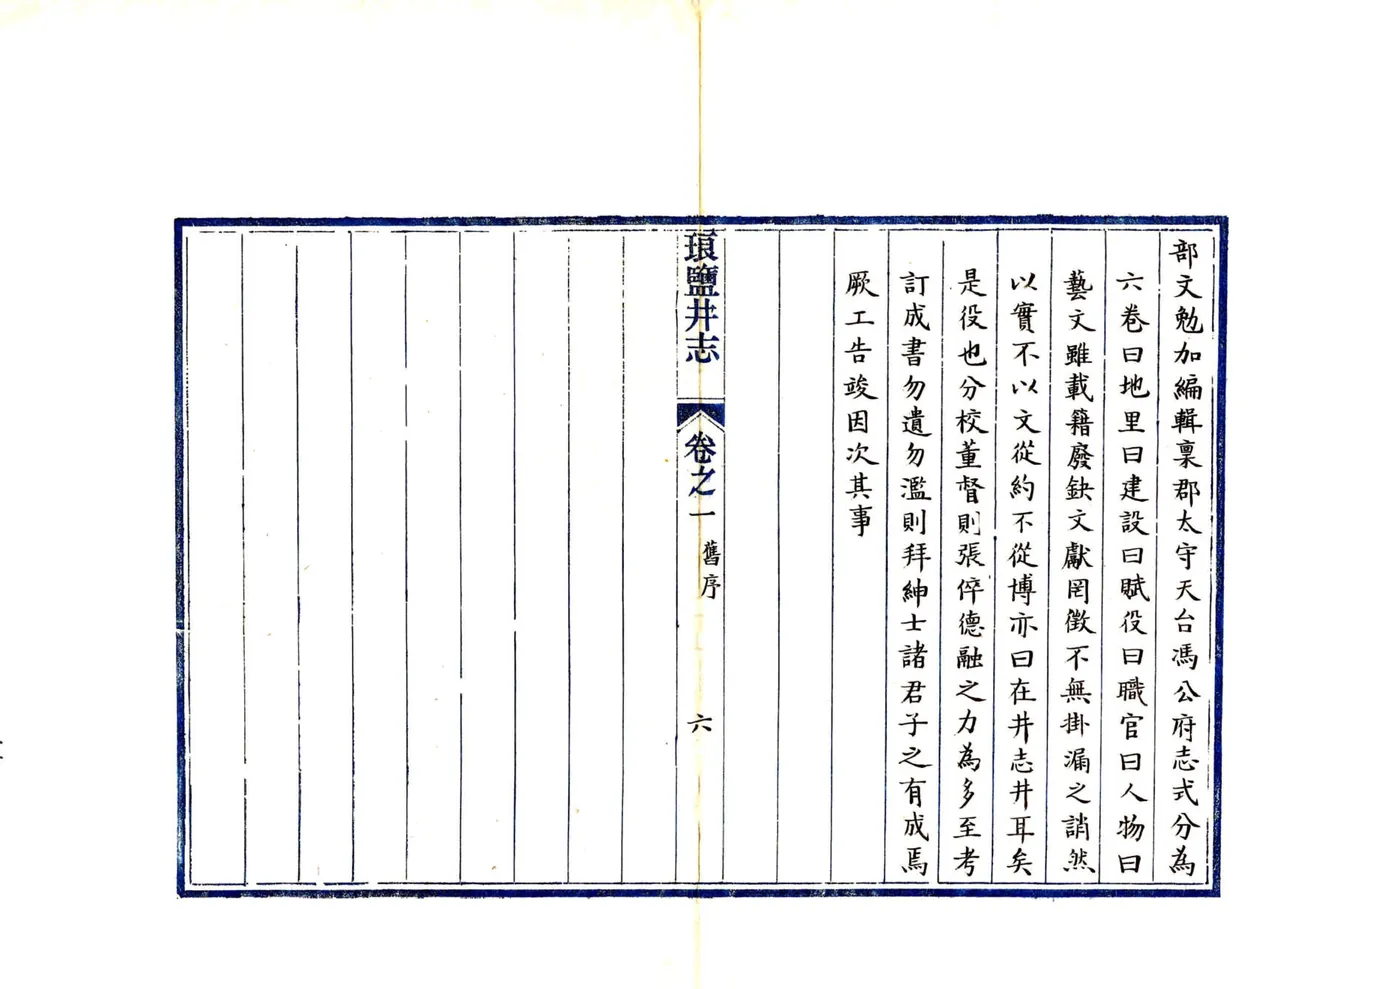 部文勉加編輯稟郡太守天台馮公府志式分為
六卷曰地里曰建設曰賦役曰職官曰人物曰
藝文雖載籍廢缺文獻罔徵不無掛漏之誚然
以實不以文從約不從博亦曰在井志井耳矣
是役也分校董督則張倅德融之力為多至考
訂成書勿遺勿濫則拜紳士諸君子之有成焉
厥工告竣因次其事
琅鹽井志
卷之一
舊序
六